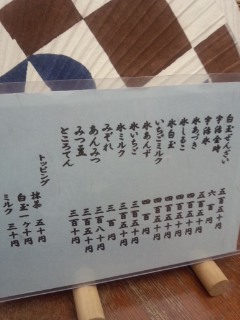 白玉ぜんざい 六百円
宇治金時 六百円
宇治氷 五百円
氷あづき 五百五十円
氷しるこ 五百五十円
氷白玉 四百五十円
いちごミルク 四百五十円
氷あんず 四百円
氷いちご 三百五十円
氷ミルク 三百五十円
みぞれ 三百円
あんみつ 三百八十円
みつ豆 三百五十円
ところてん 三百五十円
トッピング
抹茶 五十円
白玉一ケ十円
ミルク 三十円